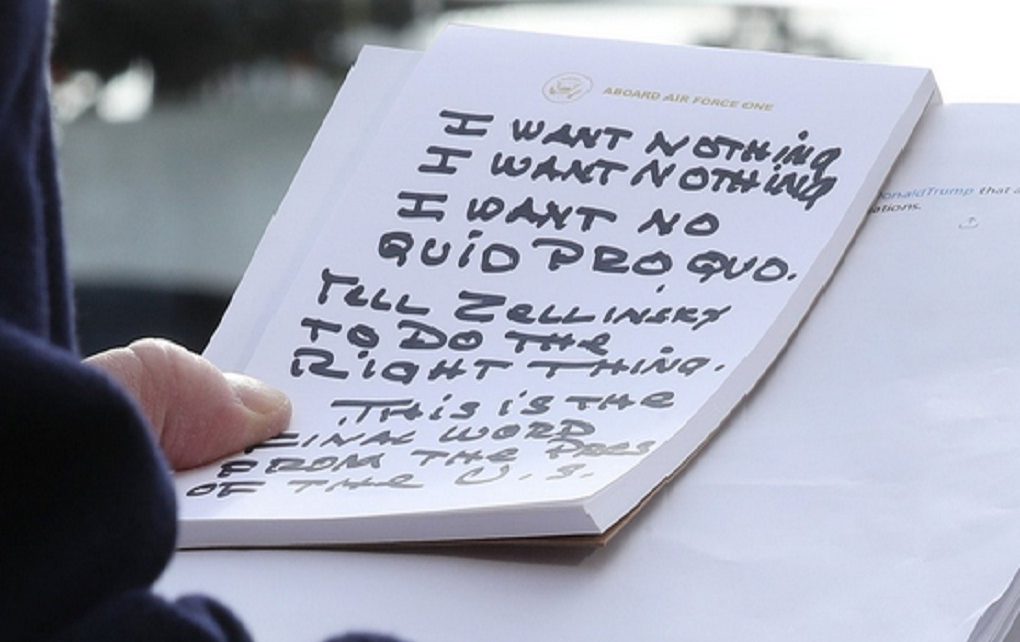 ABOARD AIR FORCE ONE
I WANT NOTHiNG
I WANT NOTHiNG
I WANT NO
QUiD PRO QUO.
TELL ZELLINSKY
TO DO THE
RiGHT THiNG.
THiS iS THE
FINAL WORD
FROM THE PRES
OF THE U.S.
onaldTrump that a
ations.